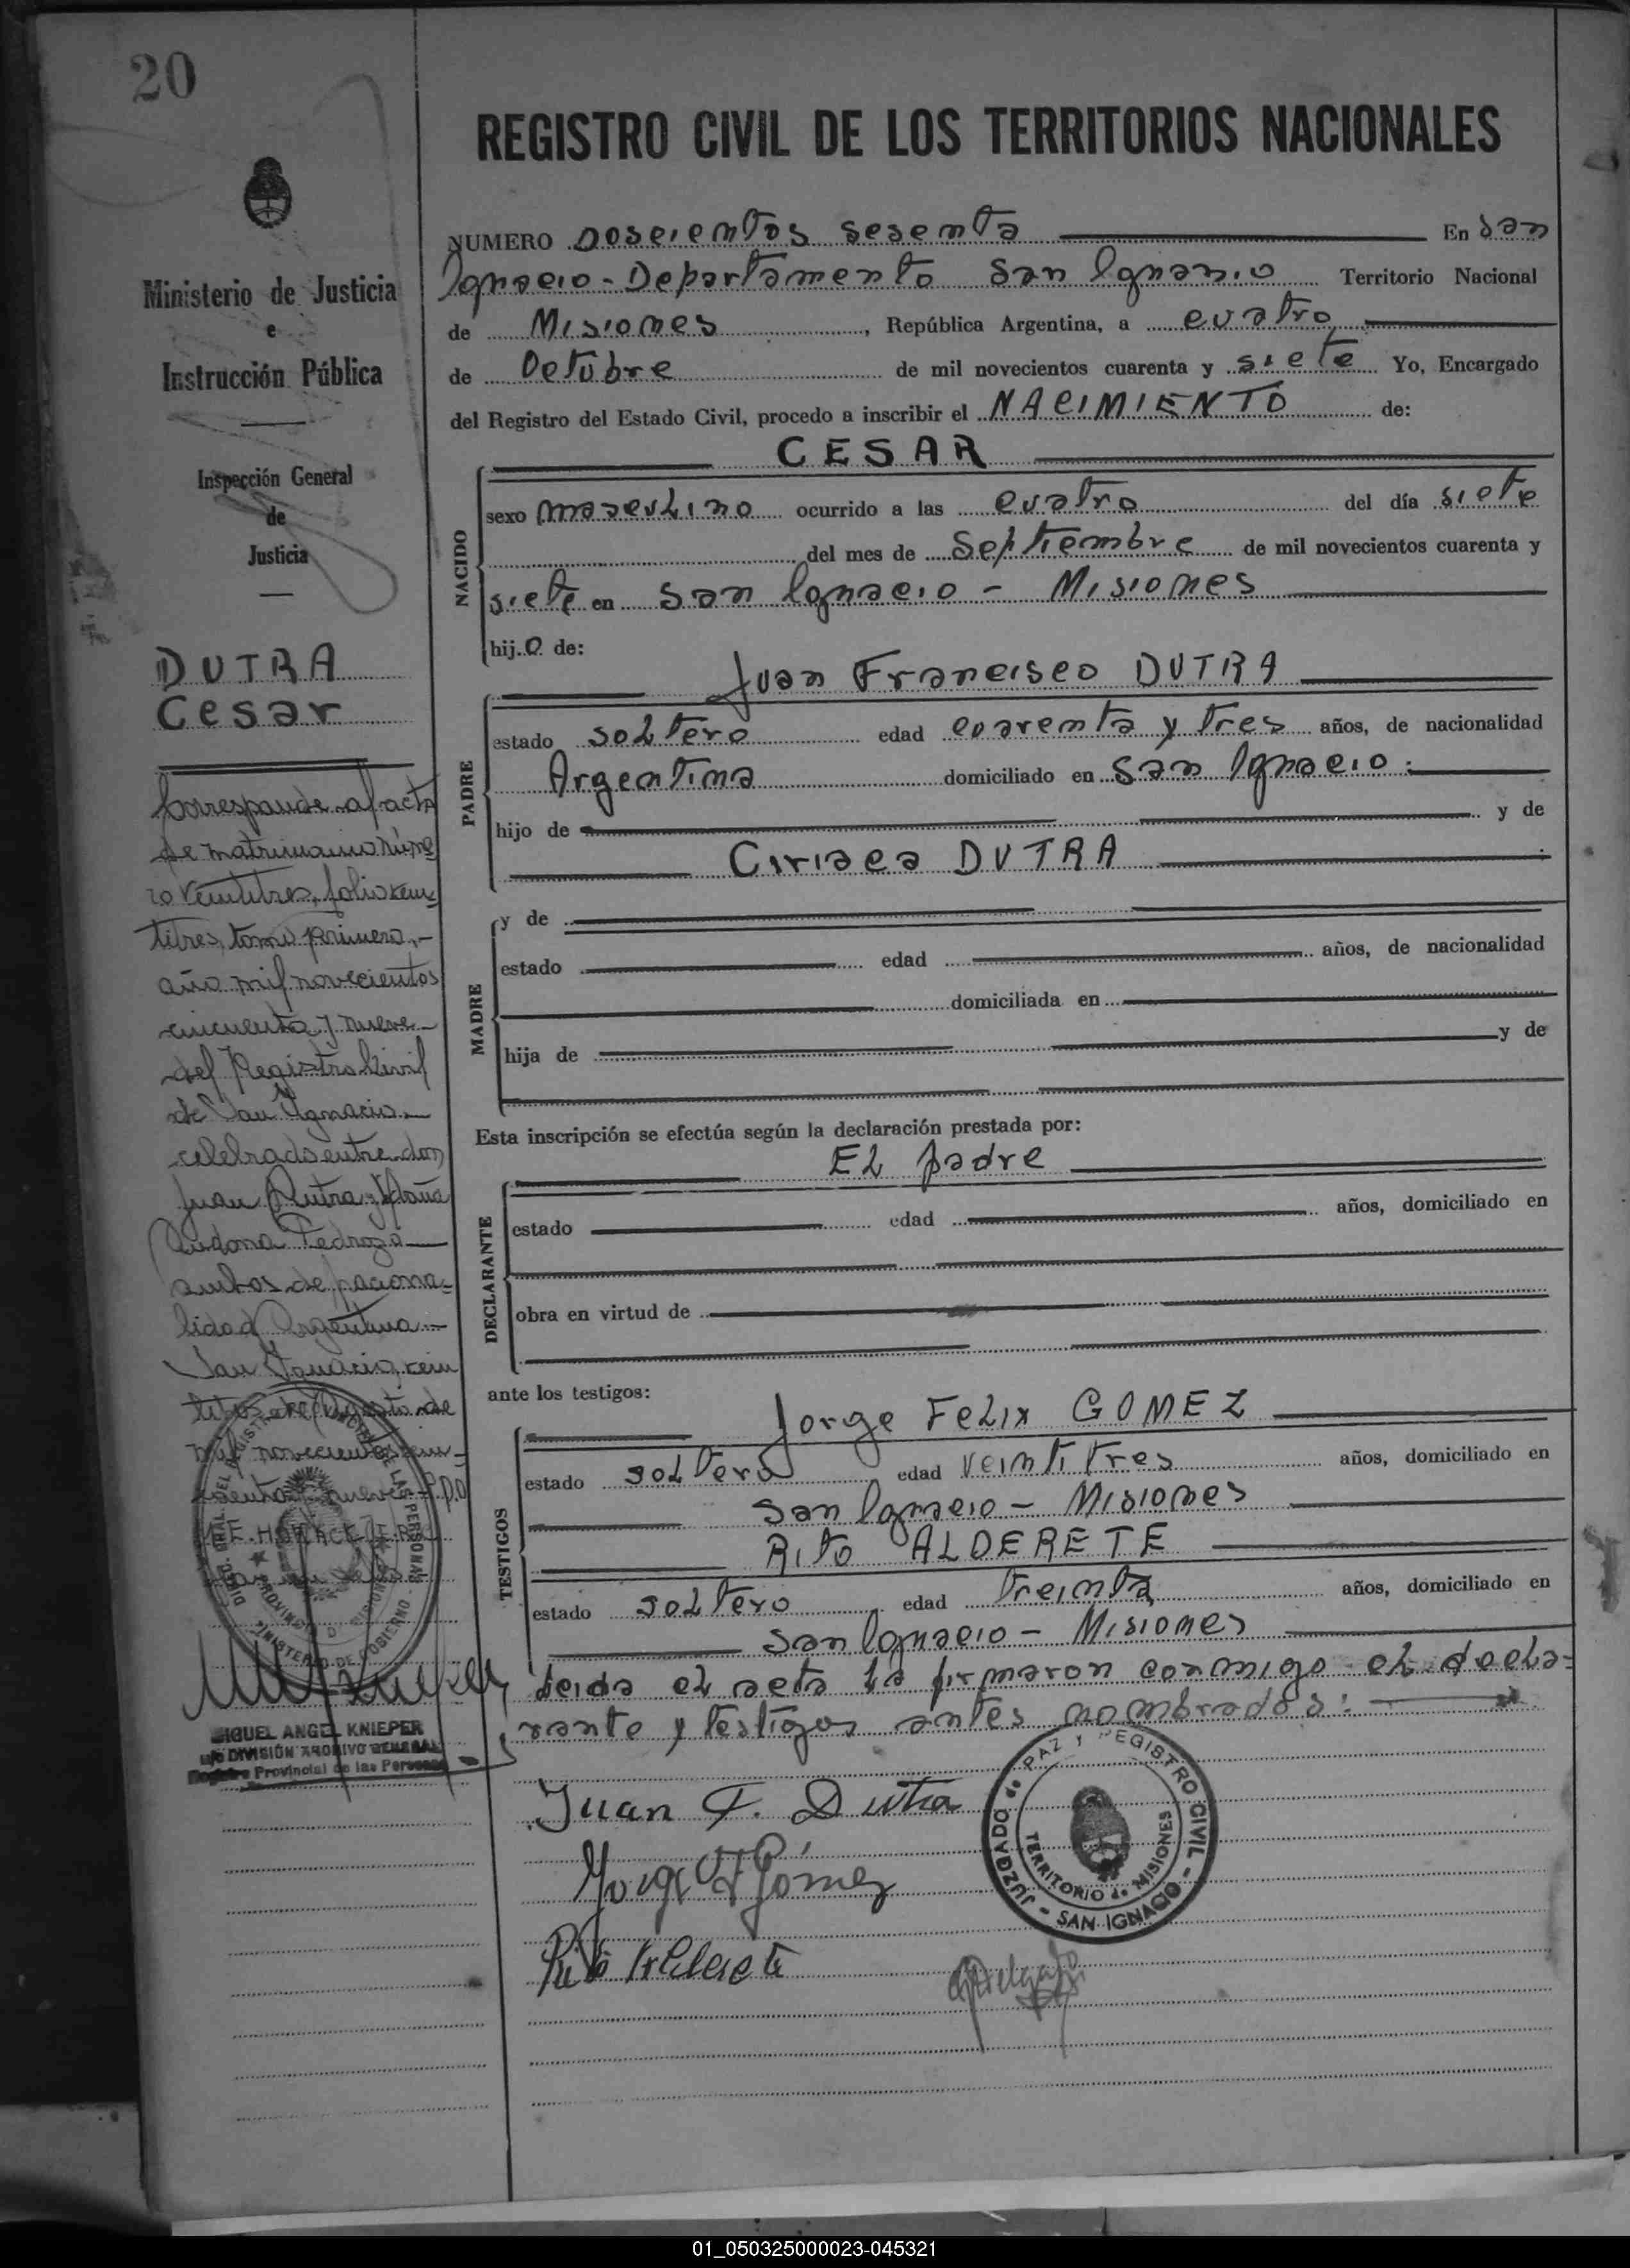 20
REGISTRO CIVIL DE LOS TERRITORIOS NACIONALES
Ministerio de Justicia
e
Instrucción Pública
Inspección General
de
Justicia
DUTRA
Cesar
Corresponde al acta
de matrimonio núme
ro veintitres, folio vein
titres, tomo primero,-
año mil novecientos
cincuenta y nueve-
del Registro Civil
de San Ignacio-
celebrado entre don
Juan Dutra y doña
Pedrozo
ambos de naciona-
lidad Argentina-
San Ignacio, vein
titres de Agosto de
mil novecientos cin-
cuenta y nueve
MIGUEL ANGEL KNIEPER
DIVISIÓN ARCHIVO GENERAL
Registro Provincial de las Personas
NUMERO Doscientos sesenta En San
Ignacio - Departamento San Ignanio Territorio Nacional
de Misiones, República Argentina, a cuatro
de Octubre de mil novecientos cuarenta y siete Yo, Encargado
del Registro del Estado Civil, procedo a inscribir el NACIMIENTO de:
CESAR
NACIDO
sexo masculino ocurrido a las cuatro del día siete
del mes de Septiembre de mil novecientos cuarenta y
siete en San Ignacio - Misiones
hijo de:
Juan Francisco DUTRA
PADRE
estado soltero edad cuarenta y tres años, de nacionalidad
Argentina domiciliado en San Ignacio.
hijo de y de
Ciriaca DUTRA
MADRE
y de
estado edad años, de nacionalidad
domiciliada en
hija de y de
Esta inscripción se efectúa según la declaración prestada por:
El padre
DECLARANTE
estado edad años, domiciliado en
obra en virtud de
ante los testigos:
Jorge Felix GOMEZ
TESTIGOS
estado soltero edad veintitres años, domiciliado en
San Ignacio - Misiones
Rito ALDERETE
estado soltero edad treinta años, domiciliado en
San Ignacio - Misiones
Leida el acta la firmaron conmigo el decla-
rante y testigos antes nombrados:
Juan F. Dutra
Jorge F Gómez
Rito Alderete
JUZGADO de PAZ Y REGISTRO CIVIL - SAN IGNACIO -
TERRITORIO de MISIONES
01_050325000023-045321